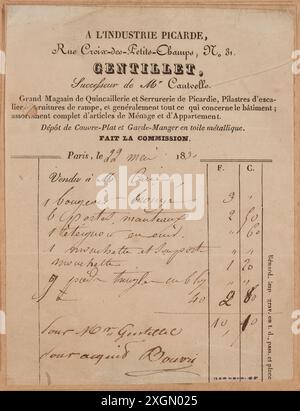 A L'INDUSTRIE PICARDE,
Rue Croix-des-Petits-Champs, No. 31.
GENTILLET,
Successeur de Mr Cauvelle.
Grand Magasin de Quincaillerie et Serrurerie de Picardie, Pilastres d'esca-
lier, garnitures de rampe, et généralement tout ce qui concerne le bâtiment;
assortiment complet d'articles de Ménage et d'Appartement.
Dépôt de Couvre-Plat et Garde-Manger en toile métallique.
FAIT LA COMMISSION.
Paris, le 22 mai 183
Vendu à M.
F. C.
1 bougeoir 3 "
6 portes manteaux 2 50
1 " 60
1 mouchette et support " "
mouchette 1 20
9 tringle 40 2 80
10 10
Pour Mr Gentillet
pour acquit
alamy
Image ID: 2XGN025
www.alamy.com